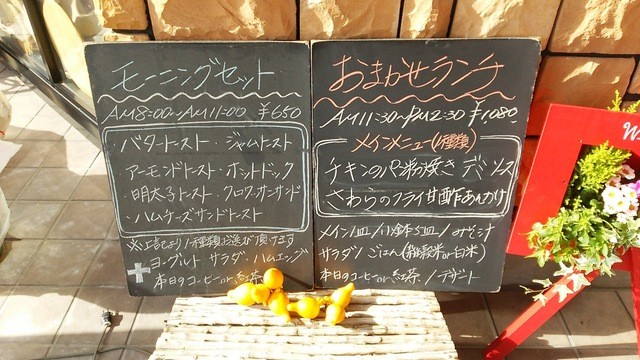 モーニングセット
AM8:00~AM11:00 ¥650
バタートースト・ジャムトースト
アーモンドトースト・ホットドック
明太子トースト・クロワッサンサンド
ハムチーズサンドトースト
※上記より1種類お選び頂けます
ヨーグルト サラダ ハムエッグ
本日のコーヒーor紅茶
おまかせランチ
AM11:30~PM2:30 ¥1,080
メインメニュー(1種類)
チキンのパン粉焼き デミソース
さわらのフライ甘酢あんかけ
メイン1皿/小鉢5皿/みそ汁
サラダ/ごはん(雑穀米or白米)
本日のコーヒーor紅茶/デザート
W